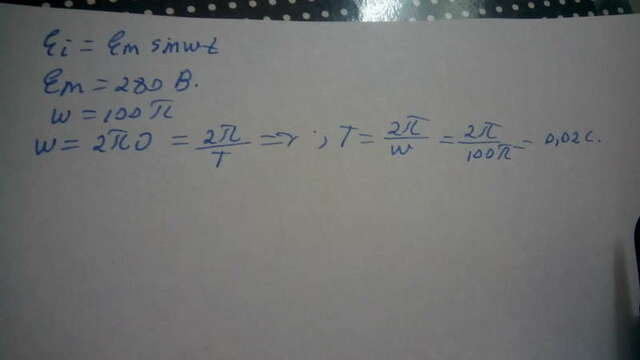 Ɛi = Ɛm sinωt
Ɛm = 280 В.
ω = 100π
ω = 2πυ = 2π/T => ; T = 2π/ω = 2π/100π = 0,02 с.